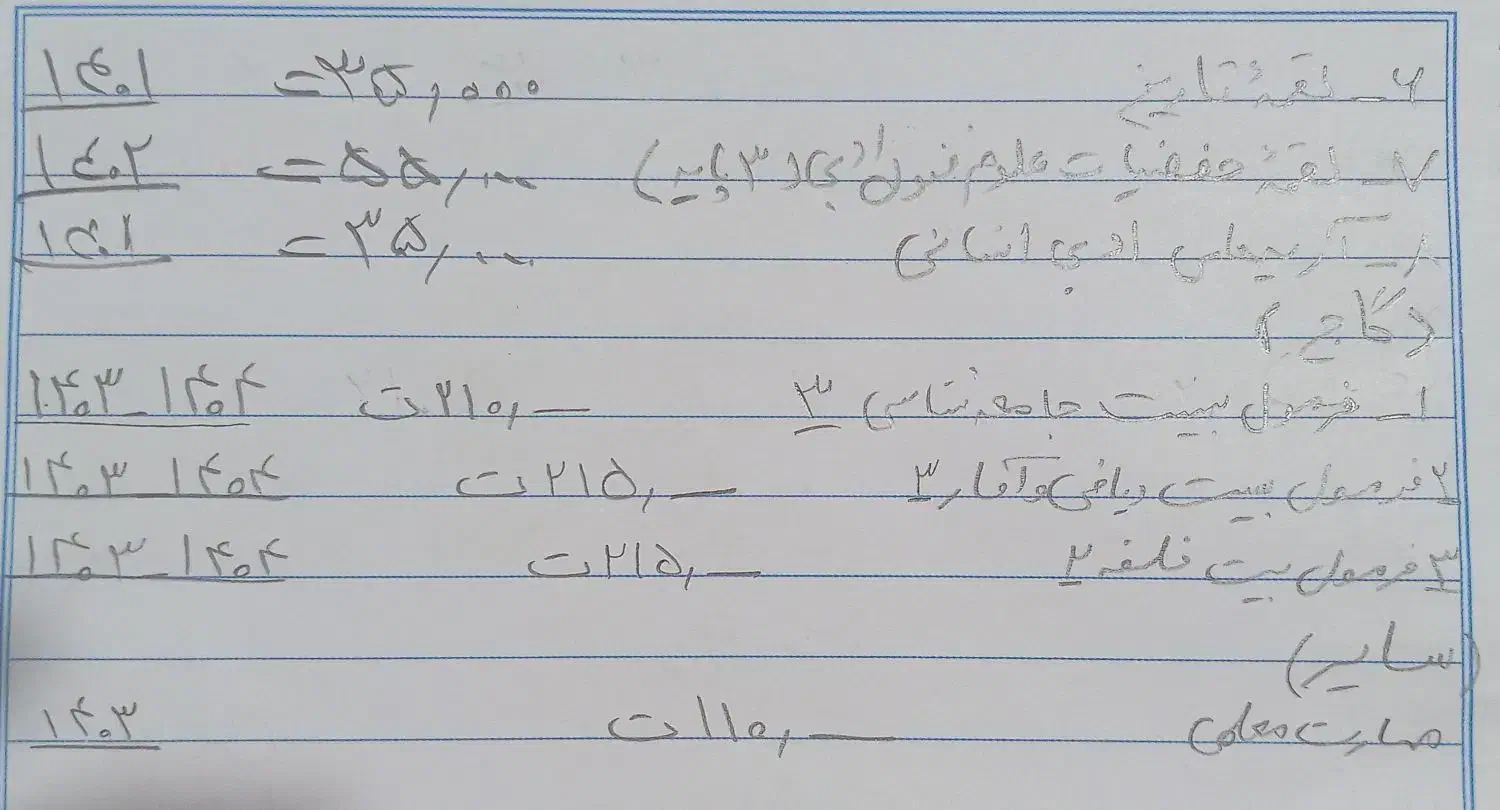 ۶_ لقمهٔ تاریخ ۳۵,۰۰۰ ت ۱۴۰۱
۷_ لقمهٔ حفظیات علوم فنون ادبی (۳ پایه) ۵۵,۰۰۰ ت ۱۴۰۲
۸_ آرایه‌های ادبی انسانی ۳۵,۰۰۰ ت ۱۴۰۱
(گاج)
۱_ فرمول بیست جامعه شناسی ۳ ۲۱۰,— ت ۱۴۰۳_۱۴۰۴
۲ فرمول بیست ریاضی و آمار ۳ ۲۱۵,— ت ۱۴۰۳_۱۴۰۴
۳ فرمول بیست فلسفه ۲ ۲۱۵,— ت ۱۴۰۳_۱۴۰۴
(سایر)
مهارت معلمی ۱۱۰,— ت ۱۴۰۳